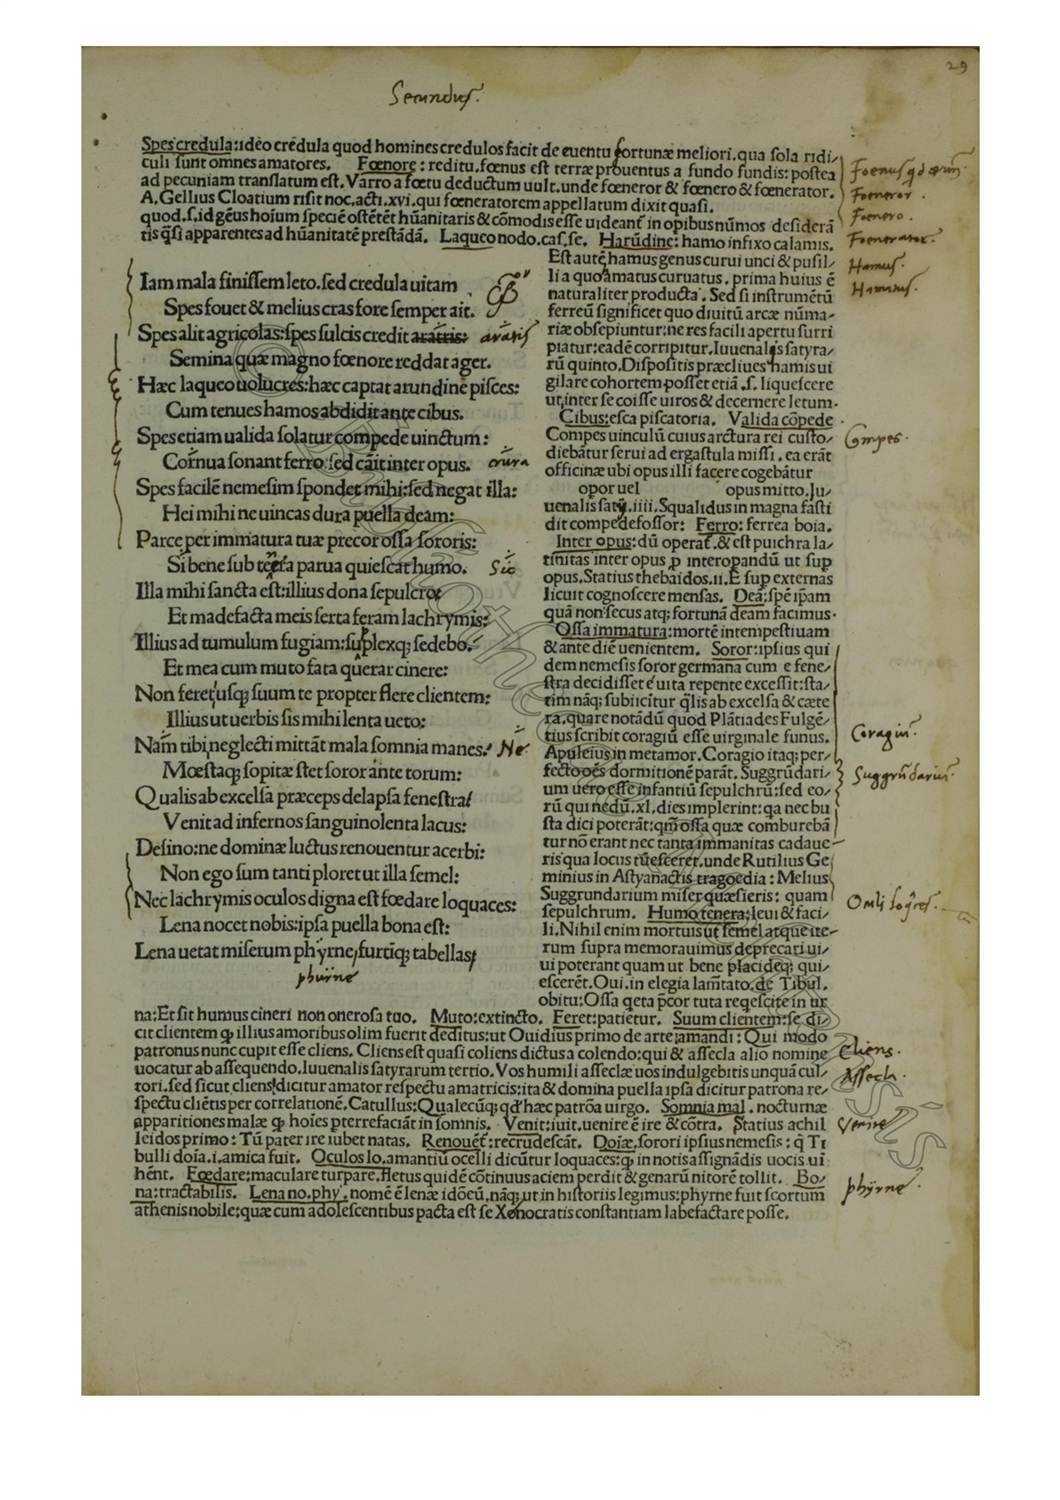 29
Secundus.
Spes credula: ideo credula quod homines credulos facit de euentu fortunæ meliori. qua sola ridi/
culi sunt omnes amatores. Fœnore: reditu. fœnus est terræ prouentus a fundo fundis: postea
ad pecuniam translatum est. Varro a fœtu deductum uult. unde fœneror & fœnero & fœnerator.
A. Gellius Cloatium risit noc. acti. xvi. qui fœneratorem appellatum dixit quasi.
quod. s. id gēus hoīum speciē ostētēt hūanitaris & cōmodis esse uideant̄ in opibus nūmos desiderā
tis q̄si apparentes ad hūanitatē prestādā. Laqueo nodo. cas. se. Harūdine: hamo infixo calamis.
Fœnus
Fœneror.
Fœnero.
Fœnerator.
Hamus.
Iam mala finissem leto. sed credula uitam
Spes fouet & melius cras fore semper ait.
Spes alit agricolas: spes sulcis credit aratris: aratis
Semina quæ magno fœnore reddat ager.
Hæc laqueo uolucres: hæc captat arundine pisces:
Cum tenues hamos abdidit ante cibus.
Spes etiam ualida solatur compede uinctum:
Cornua sonant ferro. sed cāit inter opus. crura
Spes facilē nemesim spondet mihi: sed negat illa:
Hei mihi ne uincas dura puella deam:
Parce per immatura tuæ precor ossa sororis:
Si bene sub tessa parua quiescat humo. Sic
Illa mihi sancta est: illius dona sepulcro
Et madefacta meis serta feram lachrymis:
Illius ad tumulum fugiam: suplexq; sedebo.
Et mea cum muto fata querar cinere:
Non feret usq; suum te propter flere clientem:
Illius ut uerbis sis mihi lenta ueto:
Nam tibi neglecti mittāt mala somnia manes. Ne
Mœstaq; sopitæ stet soror ante torum:
Qualis ab excelsa præceps delapsa fenestra
Venit ad infernos sanguinolenta lacus:
Desino: ne dominæ luctus renouentur acerbi:
Non ego sum tanti ploret ut illa semel:
Nec lachrymis oculos digna est fœdare loquaces:
Lena nocet nobis: ipsa puella bona est:
Lena uetat miserum phyrne, furtiq; tabellas
phÿrne
Est autē hamus genus curui unci & pusil/
li a quo amatus curuatus. prima huius ē
naturaliter producta. Sed si instrumētū
ferreū significet quo diuitū arcæ nūma/
riæ obsepiuntur: ne res facili apertu surri
piatur: eadē corripitur. Iuuenalis satyra/
rū quinto. Dispositis præcliues hamis ui
gilare cohortem posset etiā. s. liquescere
ut inter se coisse uiros & decernere letum.
Cibus: esca piscatoria. Valida cōpede
Compes uinculū cuius arctura rei custo/
diebātur serui ad ergastula missi. ea erāt
officinæ ubi opus illi facere cogebātur
opor uel opus mitto. Iu/
uenalis saty. iiii. Squalidus in magna fasti
dit compede fossor: Ferro: ferrea boia.
Inter opus: dū operat̄. & est pulchra la/
tinitas inter opus p̱ interopandū ut sup
opus. Statius thebaidos. ii. E sup externas
licuit cognoscere mensas. Deā: spē ip̄am
quā non secus atq; fortunā deam facimus.
Ossa immatura: mortē intempestiuam
& ante diē uenientem. Soror: ipsius qui
dem nemesis soror germana cum e fene/
stra decidisset e uita repente excessit: sta/
tim nāq; subiicitur q̄lis ab excelsa & cæte
ra. quare notādū quod Plātiades Fulgē/
tius scribit coragiū esse uirginale funus.
Apuleius in metamor. Coragio itaq; per/
fecto oēs dormitionē parāt. Suggrūdari/
um uero esse infantiū sepulchrū: sed eo/
rū qui nedū. xl. dies implerint: qa nec bu
sta dici poterāt: qm̄ ossa quæ comburebā
tur nō erant nec tanta immanitas cadaue
ris qua locus tūesceret. unde Rutilius Ge
minius in Astyanactis tragoedia: Melius
Suggrundarium miser quæsieris: quam
sepulchrum. Humo tenera: leui & faci/
li. Nihil enim mortuis ut semel atque ite/
rum supra memorauimus deprecari ui/
ui poterant quam ut bene placideq; qui/
escerēt. Oui. in elegia lam̄tato. de Tibul.
obitu: Ossa qeta p̄cor tuta reqescite in ur
Compes.
Coragiū.
Suggrūdariū.
na: Et sit humus cineri non onerosa tuo. Muto: extincto. Feret: patietur. Suum clientem: se di/
cit clientem q̱ illius amoribus olim fuerit deditus: ut Ouidius primo de arte amandi: Qui modo
patronus nunc cupit esse cliens. Cliens est quasi coliens dictus a colendo: qui & assecla alio nomine
uocatur ab assequendo. Iuuenalis satyrarum tertio. Vos humili asseclæ uos indulgebitis unquā cul/
tori. sed sicut cliens dicitur amator respectu amatricis: ita & domina puella ipsa dicitur patrona re/
spectu cliētis per correlationē. Catullus: Qualecūq; qd̄ hæc patrōa uirgo. Somnia mal. nocturnæ
apparitiones malæ q̱ hoīes pterrefaciāt in somnis. Venit: iuit. uenire ē ire & cōtra. Statius achil
leidos primo: Tū pater ire iubet natas. Renouēt̄: recrudescāt. Doīæ. sorori ipsius nemesis: q̄ Ti
bulli doīa. i. amica fuit. Oculos lo. amantiū ocelli dicūtur loquaces: q̱ in notis assignādis uocis ui
hēnt. Fœdare: maculare turpare. fletus quidē cōtinuus aciem perdit & genarū nitorē tollit. Bo/
na: tractabilis. Lena no. phy. nomē ē lenæ idōeū. nāq; ut in historiis legimus: phyrne fuit scortum
athenis nobile: quæ cum adolescentibus pacta est se Xenocratis constantiam labefactare posse.
Cliens.
Assecla.
Venire
phÿrne